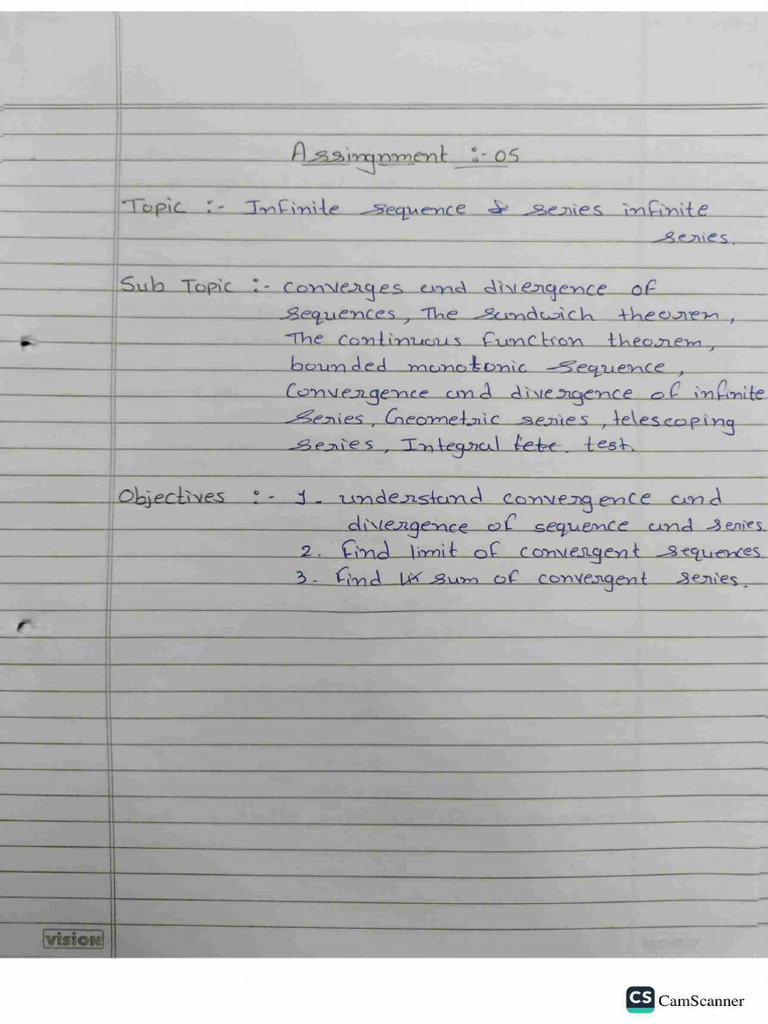 Assingnment :- 05
Topic :- Infinite sequence & series infinite
series.
Sub Topic :- converges and divergence of
sequences, The sandwich theorem,
The continuous function theorem,
bounded monotonic sequence,
Convergence and divergence of infinite
series, Geometric series, telescoping
series, Integral test.
Objectives :- 1. understand convergence and
divergence of sequence and series.
2. find limit of convergent sequences.
3. find sum of convergent series.
vision
CS CamScanner